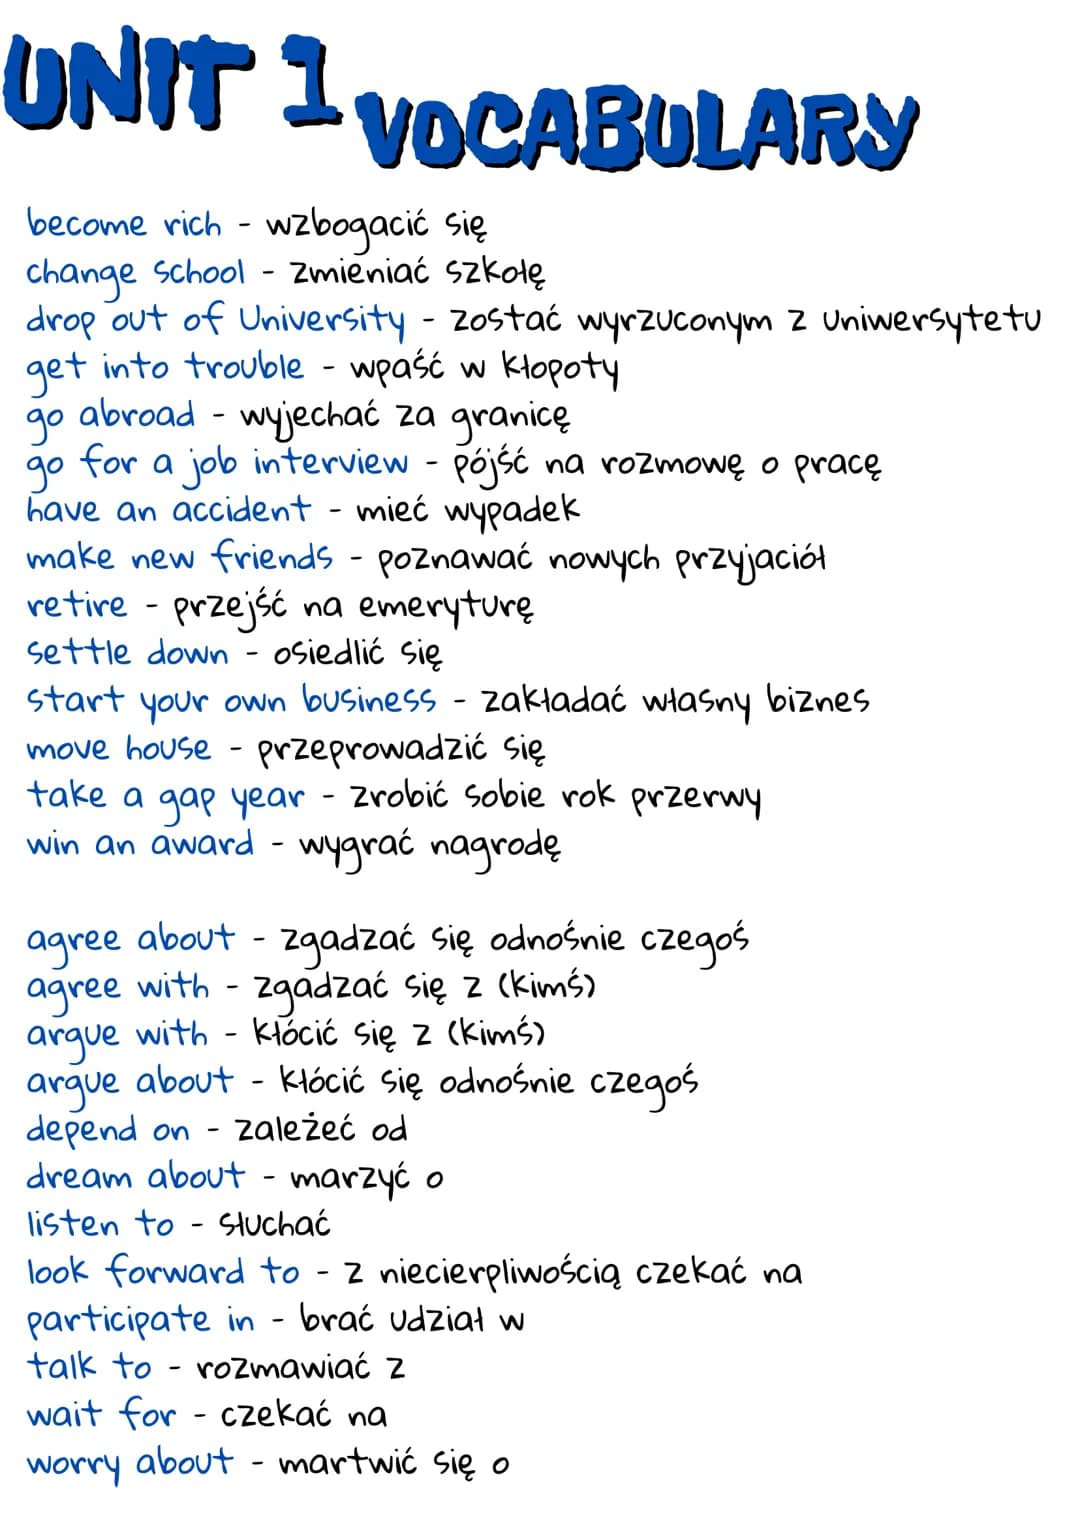 UNIT 1
VOCABULARY
become rich - wzbogacić się
change school - zmieniać szkołę
drop out of University - zostać wyrzuconym z uniwersytetu
get into trouble - wpaść w kłopoty
go abroad - wyjechać za granicę
go for a job interview - pójść na rozmowę o pracę
have an accident - mieć wypadek
make new friends - poznawać nowych przyjaciół
retire - przejść na emeryturę
settle down - osiedlić się
start your own business - zakładać własny biznes
move house - przeprowadzić się
take a gap year - zrobić sobie rok przerwy
win an award - wygrać nagrodę
agree about - zgadzać się odnośnie czegoś
agree with - zgadzać się z (kimś)
argue with - kłócić się z (kimś)
argue about - kłócić się odnośnie czegoś
depend on - zależeć od
dream about - marzyć o
listen to - słuchać
look forward to - z niecierpliwością czekać na
participate in - brać udział w
talk to - rozmawiać z
wait for - czekać na
worry about - martwić się o